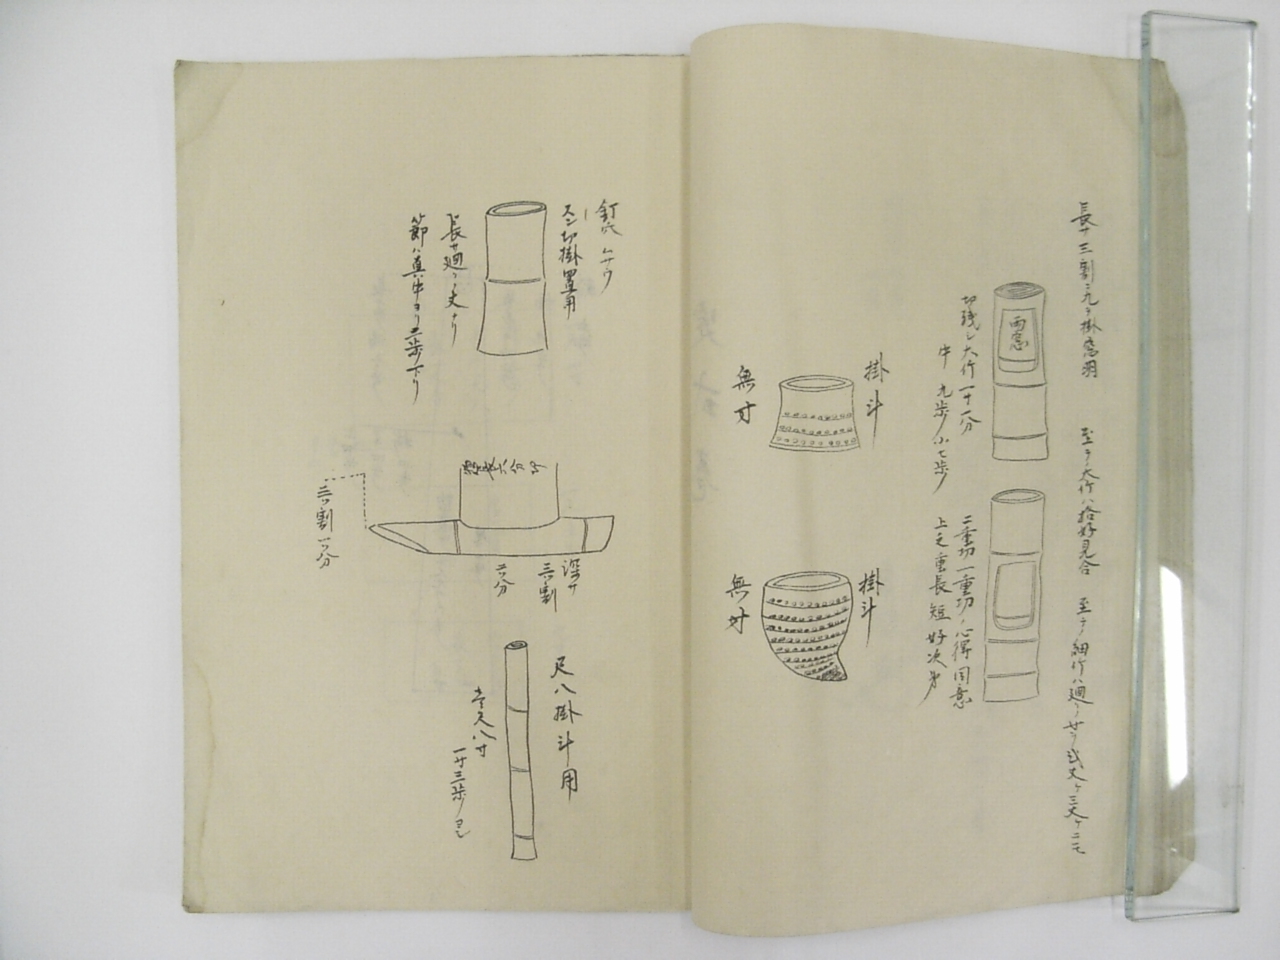 長サ三割ニ九ヲ掛
至テノ大竹ハ格好見合
至テノ細竹ハ廻リ
雨窓
切残シ大竹一寸一分
中 九歩 小七歩
二重切一重切ノ心得同意
上之重長短好次第
掛斗
無寸
掛斗
無寸
釘穴ムサウ
切掛置用
長サ廻リノ丈ナリ
節ハ真中ヨリ二歩下リ
六分切
深サ
三ツ割
二ツ分
三ツ割一ツ分
尺八掛斗用
壱尺八寸
一寸三歩ノヨシ